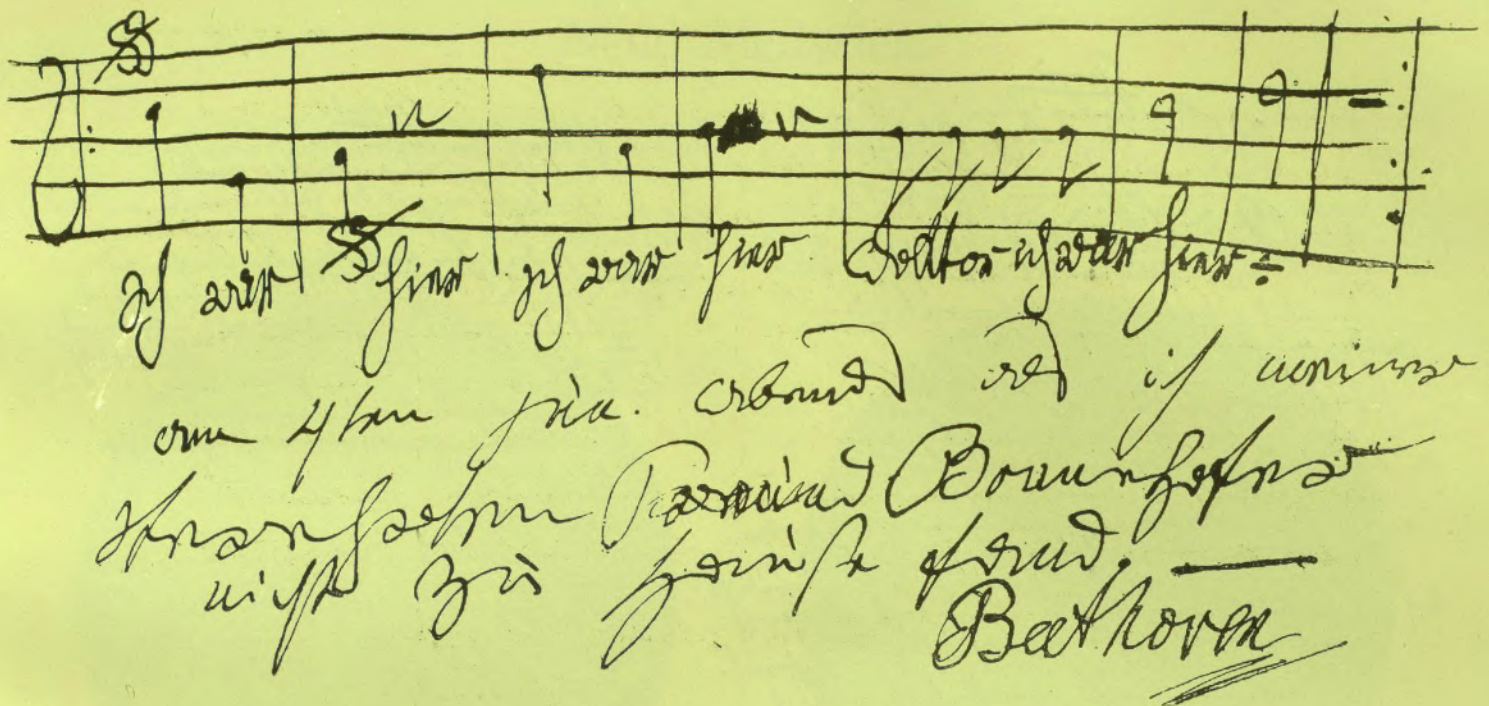 Ich war hier ich war hier Doktor ich war hier
am 4ten jun. abends als ich meinen
Verehrten Freund Braunhofer
nicht zu Hause fand. —
Beethoven